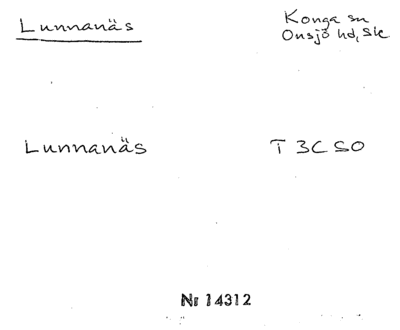 Lunnanäs
Konga sn
Onsjö hd, Sk
Lunnanäs
T 3C SO
Nr 14312